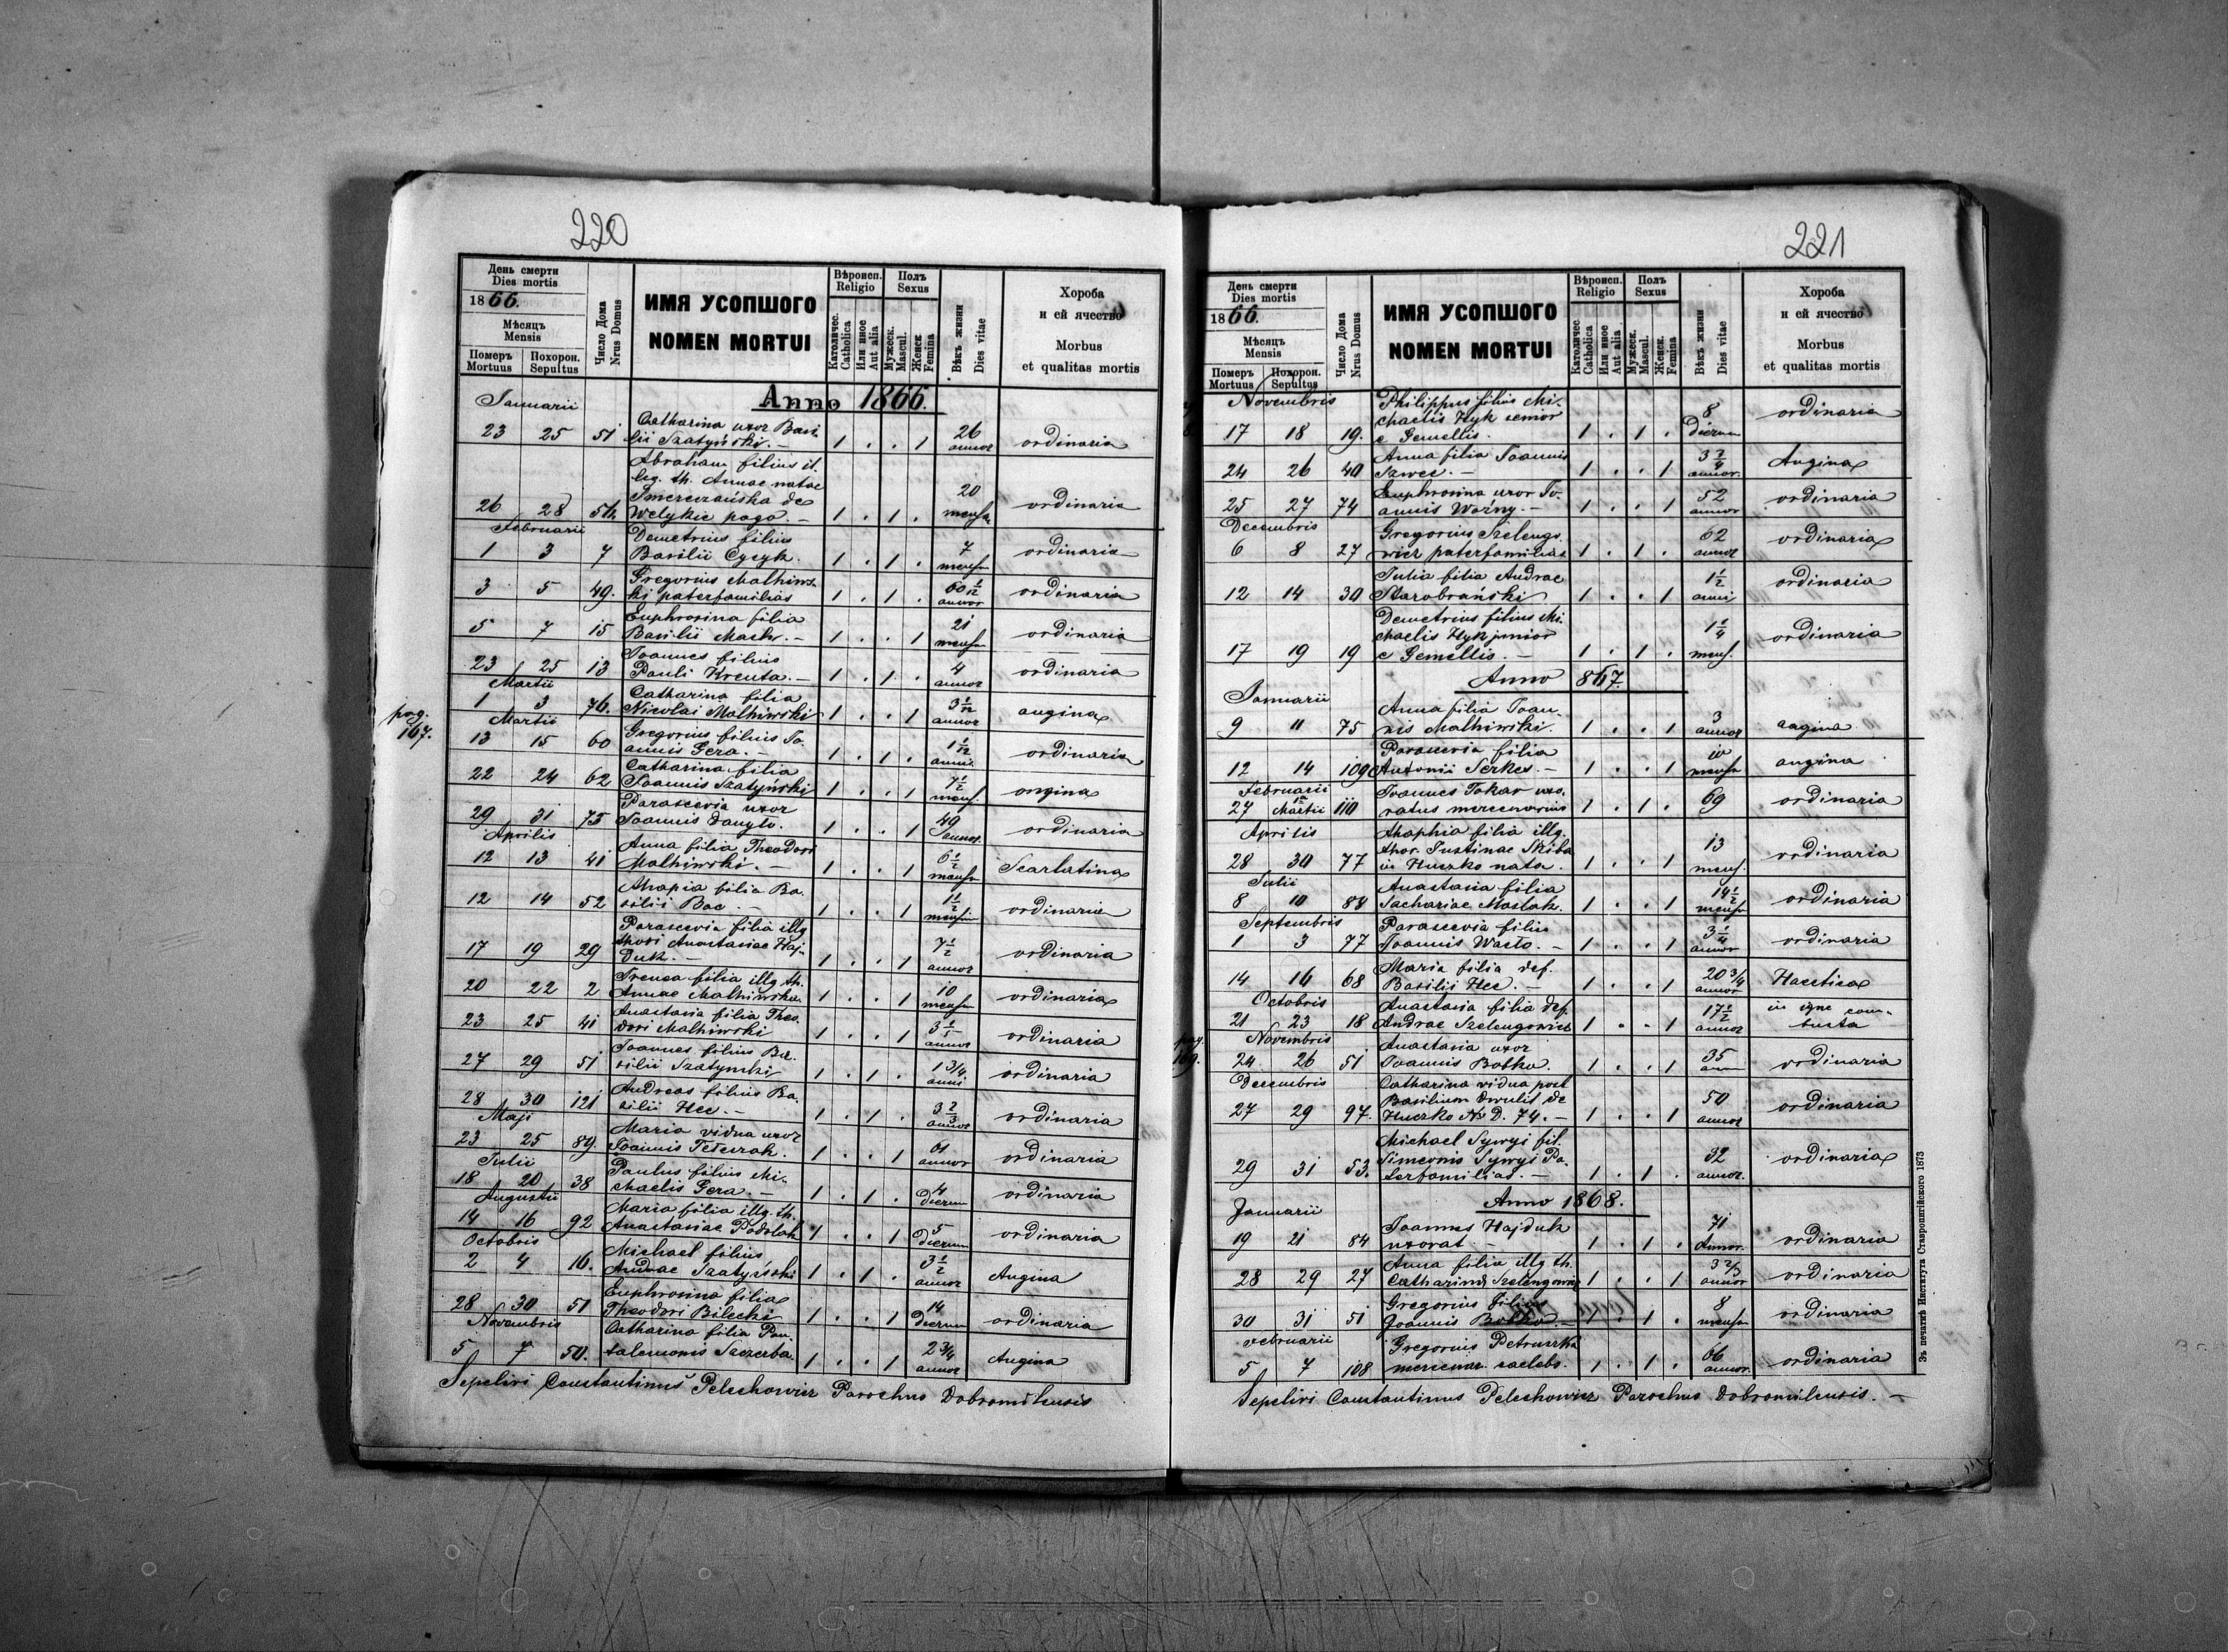 220
День смерти
Dies mortis
1866.
Мѣсяцъ
Mensis
Померъ Похорон.
Mortuus Sepultus
Число Дома
Nrus Domus
ИМЯ УСОПШОГО
NOMEN MORTUI
Вѣроисп.
Religio
Католичес.
Catholica
Или иное
Aut alia
Полъ
Sexus
Мужеск.
Mascul.
Женск.
Femina
Вѣкъ жизни
Dies vitae
Хороба
и ей ячество
Morbus
et qualitas mortis
Anno 1866.
Januarii
Catharina uxor Basi-
23 25 51 lii Szatyński. – 1 . . 1 26 annor ordinaria
Abraham filius il.
leg. th. Annae natae
Smereczańska de
26 28 54. Welykie pago. – 1 . 1 . 20 mensu ordinaria
Februarii
Demetrius filius
1 3 7 Basilii Cycyk. 1 . 1 . 7 mensu ordinaria
Gregorius Malhiws-
3 5 49. ki paterfamilias 1 . 1 . 60 1/12 annor ordinaria
Euphrosina filia
5 7 15 Basilii Mach. – 1 . . 1 21 mensu ordinaria
Joannes filius
23 25 13 Pauli Kreuta. – 1 . 1 . 4 annor ordinaria
Martii
Catharina filia
1 3 76. Nicolai Malhiwski 1 . . 1 3 1/12 annor angina
pag.
167.
Martii
Gregorius filius Jo-
13 15 60 annis Gera. – 1 . 1 . 1 1/12 anni. ordinaria
Catharina filia
22 24 62 Joannis Szatyński 1 . . 1 7 1/2 mens. angina
Parascevia uxor
29 31 73 Joannis Danyło. 1 . . 1 49 annor. ordinaria
Aprilis
Anna filia Theodori
12 13 41 Malhiwski. – 1 . . 1 6 1/2 mensu Scarlatina
Ahapia filia Ba-
12 14 52 silii Bac. – 1 . . 1 1 1/2 mensiu ordinaria
Parascevia filia illg
thori Anastasiae Haj-
17 19 29 duk. – 1 . . 1 7 1/2 annor ordinaria
Irenea filia illg th.
20 22 2 Annae Malhiwska. 1 . . 1 10 mensu ordinaria
Anastasia filia Theo-
23 25 41 dori Malhiwski 1 . . 1 3 1/5 annor ordinaria
Joannes filius Ba-
27 29 51 silii Szatynski 1 . 1 . 1 3/4 anni ordinaria
Andreas filius Ba-
28 30 121 silii Hec. – 1 . 1 . 3 2/3 annor ordinaria
Maji
Maria vidua uxor
23 25 89. Joannis 1 . . 1 61 annor ordinaria
Julii
Paulus filius Mi-
18 20 38 chaelis Gera. – 1 . 1 . 4 dierum ordinaria
Augustii
Maria filia illg. th.
14 16 92 Anastasiae Podolak 1 . . 1 5 dierum ordinaria
Octobris
Michael filius
2 4 16. Andreae Szatyński 1 . 1 . 3 1/2 annor Angina
Euphrosina filia
28 30 51 Theodori Bilecki 1 . . 1 14 dierum ordinaria
Novembris
Catharina filia Pan-
5 7 50. talemonis Szczerba. 1 . . 1 2 3/4 annor Angina
Sepelivi Constantinus Pelechowicz Parochus Dobromilensis
221
День смерти
Dies mortis
1866.
Мѣсяцъ
Mensis
Померъ Похорон.
Mortuus Sepultus
Число Дома
Nrus Domus
ИМЯ УСОПШОГО
NOMEN MORTUI
Вѣроисп.
Religio
Католичес
Catholica
Или иное
Aut alia
Полъ
Sexus
Мужеск.
Mascul.
Женск.
Femina
Вѣкъ жизни
Dies vitae
Хороба
и ей ячество
Morbus
et qualitas mortis
Novembris
Philippus filius Mi-
chaelis Hyk senior
17 18 19. e Gemellis. 1 . 1 . 8 dierum ordinaria
Anna filia Joannis
24 26 40 Szwec. – 1 . . 1 3 3/4 annor. Angina
Euphrosina uxor Jo-
25 27 74 annis Woźny. – 1 . . 1 52 annor ordinaria
Decembris
Gregorius Szelengo-
6 8 27 wicz paterfamilias 1 . 1 . 62 annor ordinaria
Julia filia Andreae
12 14 30 Starobrański 1 . . 1 1 1/2 anni ordinaria
Demetrius filius Mi-
chaelis Hyk junior
17 19 19 e Gemellis. – 1 . 1 . 1 1/4 mens. ordinaria
Anno 867.
Januarii
Anna filia Joan-
9 11 75 nis Malhiwski. 1 . . 1 3 annor angina
Parascevia filia
12 14 109 Antonii Serkes. – 1 . . 1 10 mensu angina
Februarii
Joannes Tokar uxo-
27 1 Martii 110 ratus mercenarius 1 . 1 . 69 ordinaria
Aprilis
Ahaphia filia illg.
thor. Justinae Skiba
28 30 77 in Huczko nata. 1 . . 1 13 mens. ordinaria
Julii
Anastasia filia
8 10 88 Zachariae Maslak. 1 . . 1 14 1/2 mensu ordinaria
Septembris
Parascevia filia
1 3 77 Joannis Wasło. – 1 . . 1 3 1/4 annor ordinaria
Maria filia def.
14 16 68 Basilii Hec. – 1 . . 1 20 3/4 annor Haectica
Octobris
Anastasia filia def.
21 23 18 Andreae Szelengowicz 1 . . 1 17 1/2 annor in igne com-
busta
pag.
169.
Novembris
Anastasia uxor
24 26 51 Joannis Botko. 1 . . 1 35 ordinaria
Decembris
Catharina vidua post
Basilium Dwulit de
27 29 97. Huczko No D. 74. – 1 . . 1 50 annor ordinaria
Michael Sywyj fil.
Simeonis Sywyj Pa-
29 31 53. terfamilias. – 1 . 1 . 32 annor. ordinaria
Anno 1868.
Januarii
Joannes Hajduk
19 21 84 uxorat. – 1 . 1 . 71 annor. ordinaria
Anna filia illg th.
28 29 27 Catharina Szelengowicz 1 . . 1 3 2/3 annor ordinaria
Gregorius filius
30 31 51 Joannis Botko. – 1 . 1 . 8 mensu ordinaria
Februarii
Gregorius Petruszka
5 7 108 mercenar. caelebs. 1 . 1 . 66 annor. ordinaria
Sepelivi Constantinus Pelechowicz Parochus Dobromilensis. –
Зъ печатнѣ Института Ставропигійского 1873